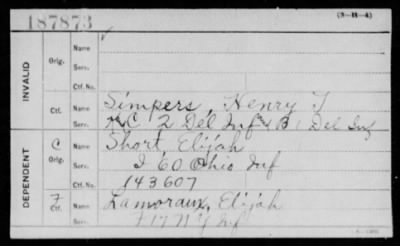 187873
(3-H-4)
INVALID
Orig.
Name
Serv.
Ctf. No.
Ctf.
Name Simpers, Henry T
Serv. K, C, 2 Del Inf & B 1 Del Inf
DEPENDENT
C
Orig.
Name Short, Elijah
Serv. I 60 Ohio Inf
Ctf. No. 143607
F
Ctf.
Name Lamoraux, Elijah
Serv. F 177 N Y Inf